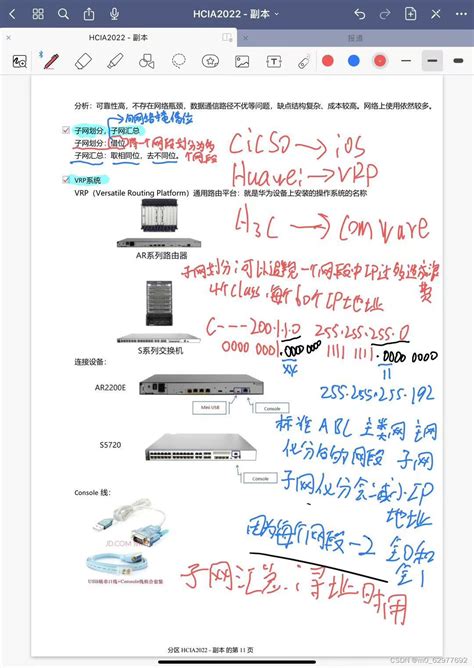 HCIA2022 - 副本
HCIA2022 - 副本
报道
分析：可靠性高，不存在网络瓶颈，数据通信路径不优等问题，缺点结构复杂、成本较高。网络上使用依然较多。
向网络境借位
子网划分，子网汇总
子网划分：借位
子网汇总：取相同位，去不同位。
VRP系统
VRP（Versatile Routing Platform）通用路由平台：就是华为设备上安装的操作系统的名称
CiCSO→ios
Huawei→VRP
H3C→Comware
AR系列路由器
子网划分；可以避免一个网段中IP过多造成浪费
4个class，每个60个IP地址
C---200.1.1.0 255.255.255.0
0000 0001.0000 0000 1111 1111.0000 0000
XY 11
S系列交换机
连接设备：
AR2200E
Mini USB
Console
255.255.255.192
标准ABC主类网 主网
化分后的网段 子网
S5720
Console
子网化分会减少IP地址
Console 线：
因为每个网段-2 全0和全1
JD.COM
USB转串口线+Console线组合套装
子网汇总：寻址时用
分区 HCIA2022 - 副本 的第 11 页
CSDN @m0_62977692